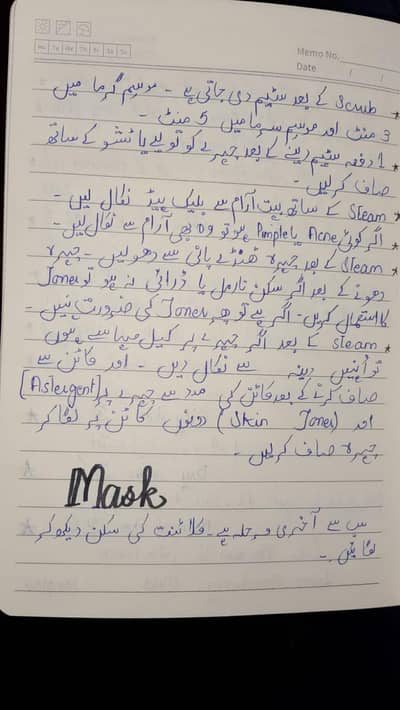 Mo Tu We Th Fr Sa Su
Memo No.
Date / /
* Scrub کے بعد سٹیم دی جاتی ہے - موسم گرما میں
3 منٹ اور موسم سرما میں 5 منٹ -
* 1 دفعہ سٹیم دینے کے بعد چہرے کو تولیے یا ٹشو کے ساتھ
صاف کر لیں -
* Steam کے ساتھ بہت آرام سے بلیک ہیڈ نکال لیں -
اگر کوئی Acne یا Pimple ہو تو وہ بھی آرام سے نکال لیں -
* Steam کے بعد چہرہ ٹھنڈے پانی سے دھو لیں - چہرہ
دھونے کے بعد اگر سکن نارمل یا ڈرائی نہ ہو تو Toner
کا استعمال کریں - اگر ہے تو پھر Toner کی ضرورت نہیں -
* steam کے بعد اگر چہرے پر کیل مہاسے ہوں
تو اُنہیں سے نکال دیں - اور کاٹن سے
صاف کرنے کے بعد کاٹن کی مدد سے چہرے پر [Astergent]
اور (Skin Toner) دونوں کاٹن پر لگا کر
چہرہ صاف کر لیں -
Mask
سب سے آخری مرحلہ ہے - کلائنٹ کی سکن دیکھ کر
لگائیں -